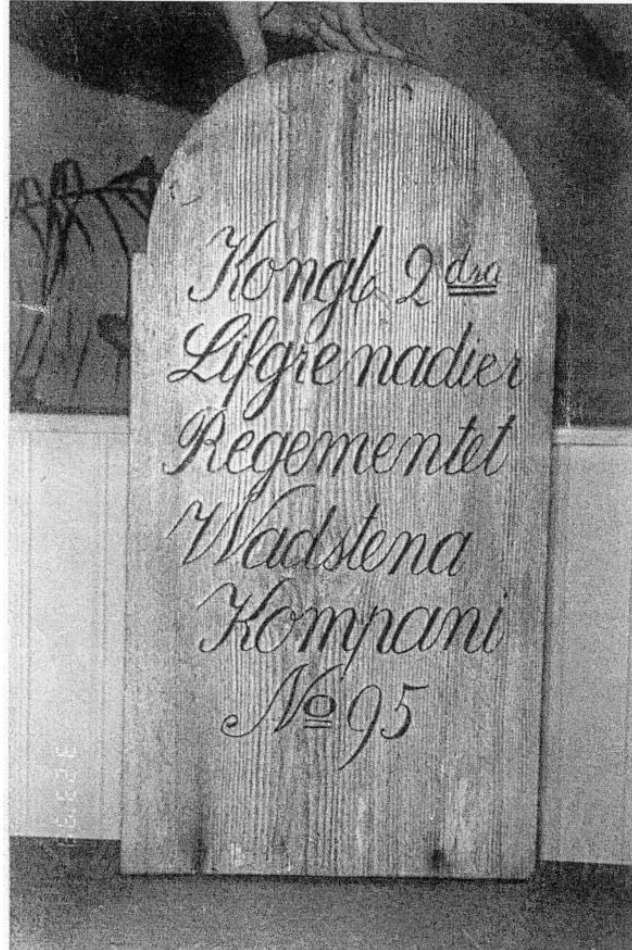 Kongl. 2dra
Lifgrenadier
Regementet
Wadstena
Kompani
No 95